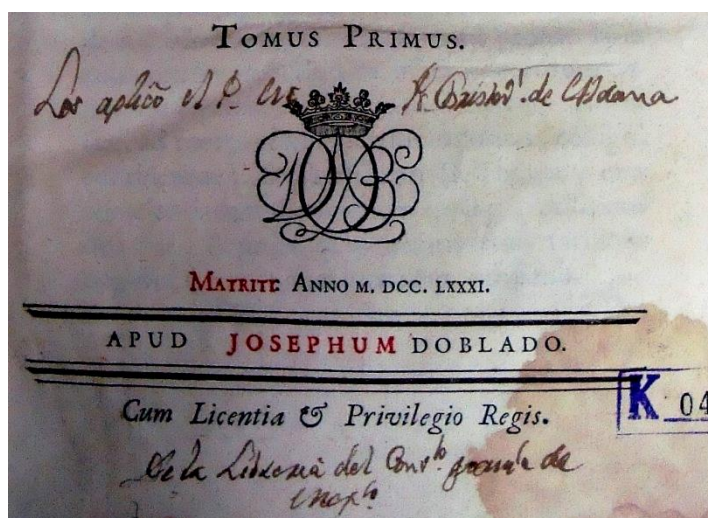 TOMUS PRIMUS.
Los aplicó el P. de Aldana
MATRITI: ANNO M. DCC. LXXXI.
APUD JOSEPHUM DOBLADO.
Cum Licentia & Privilegio Regis.
K 04
De la Libreria del Conv.to de